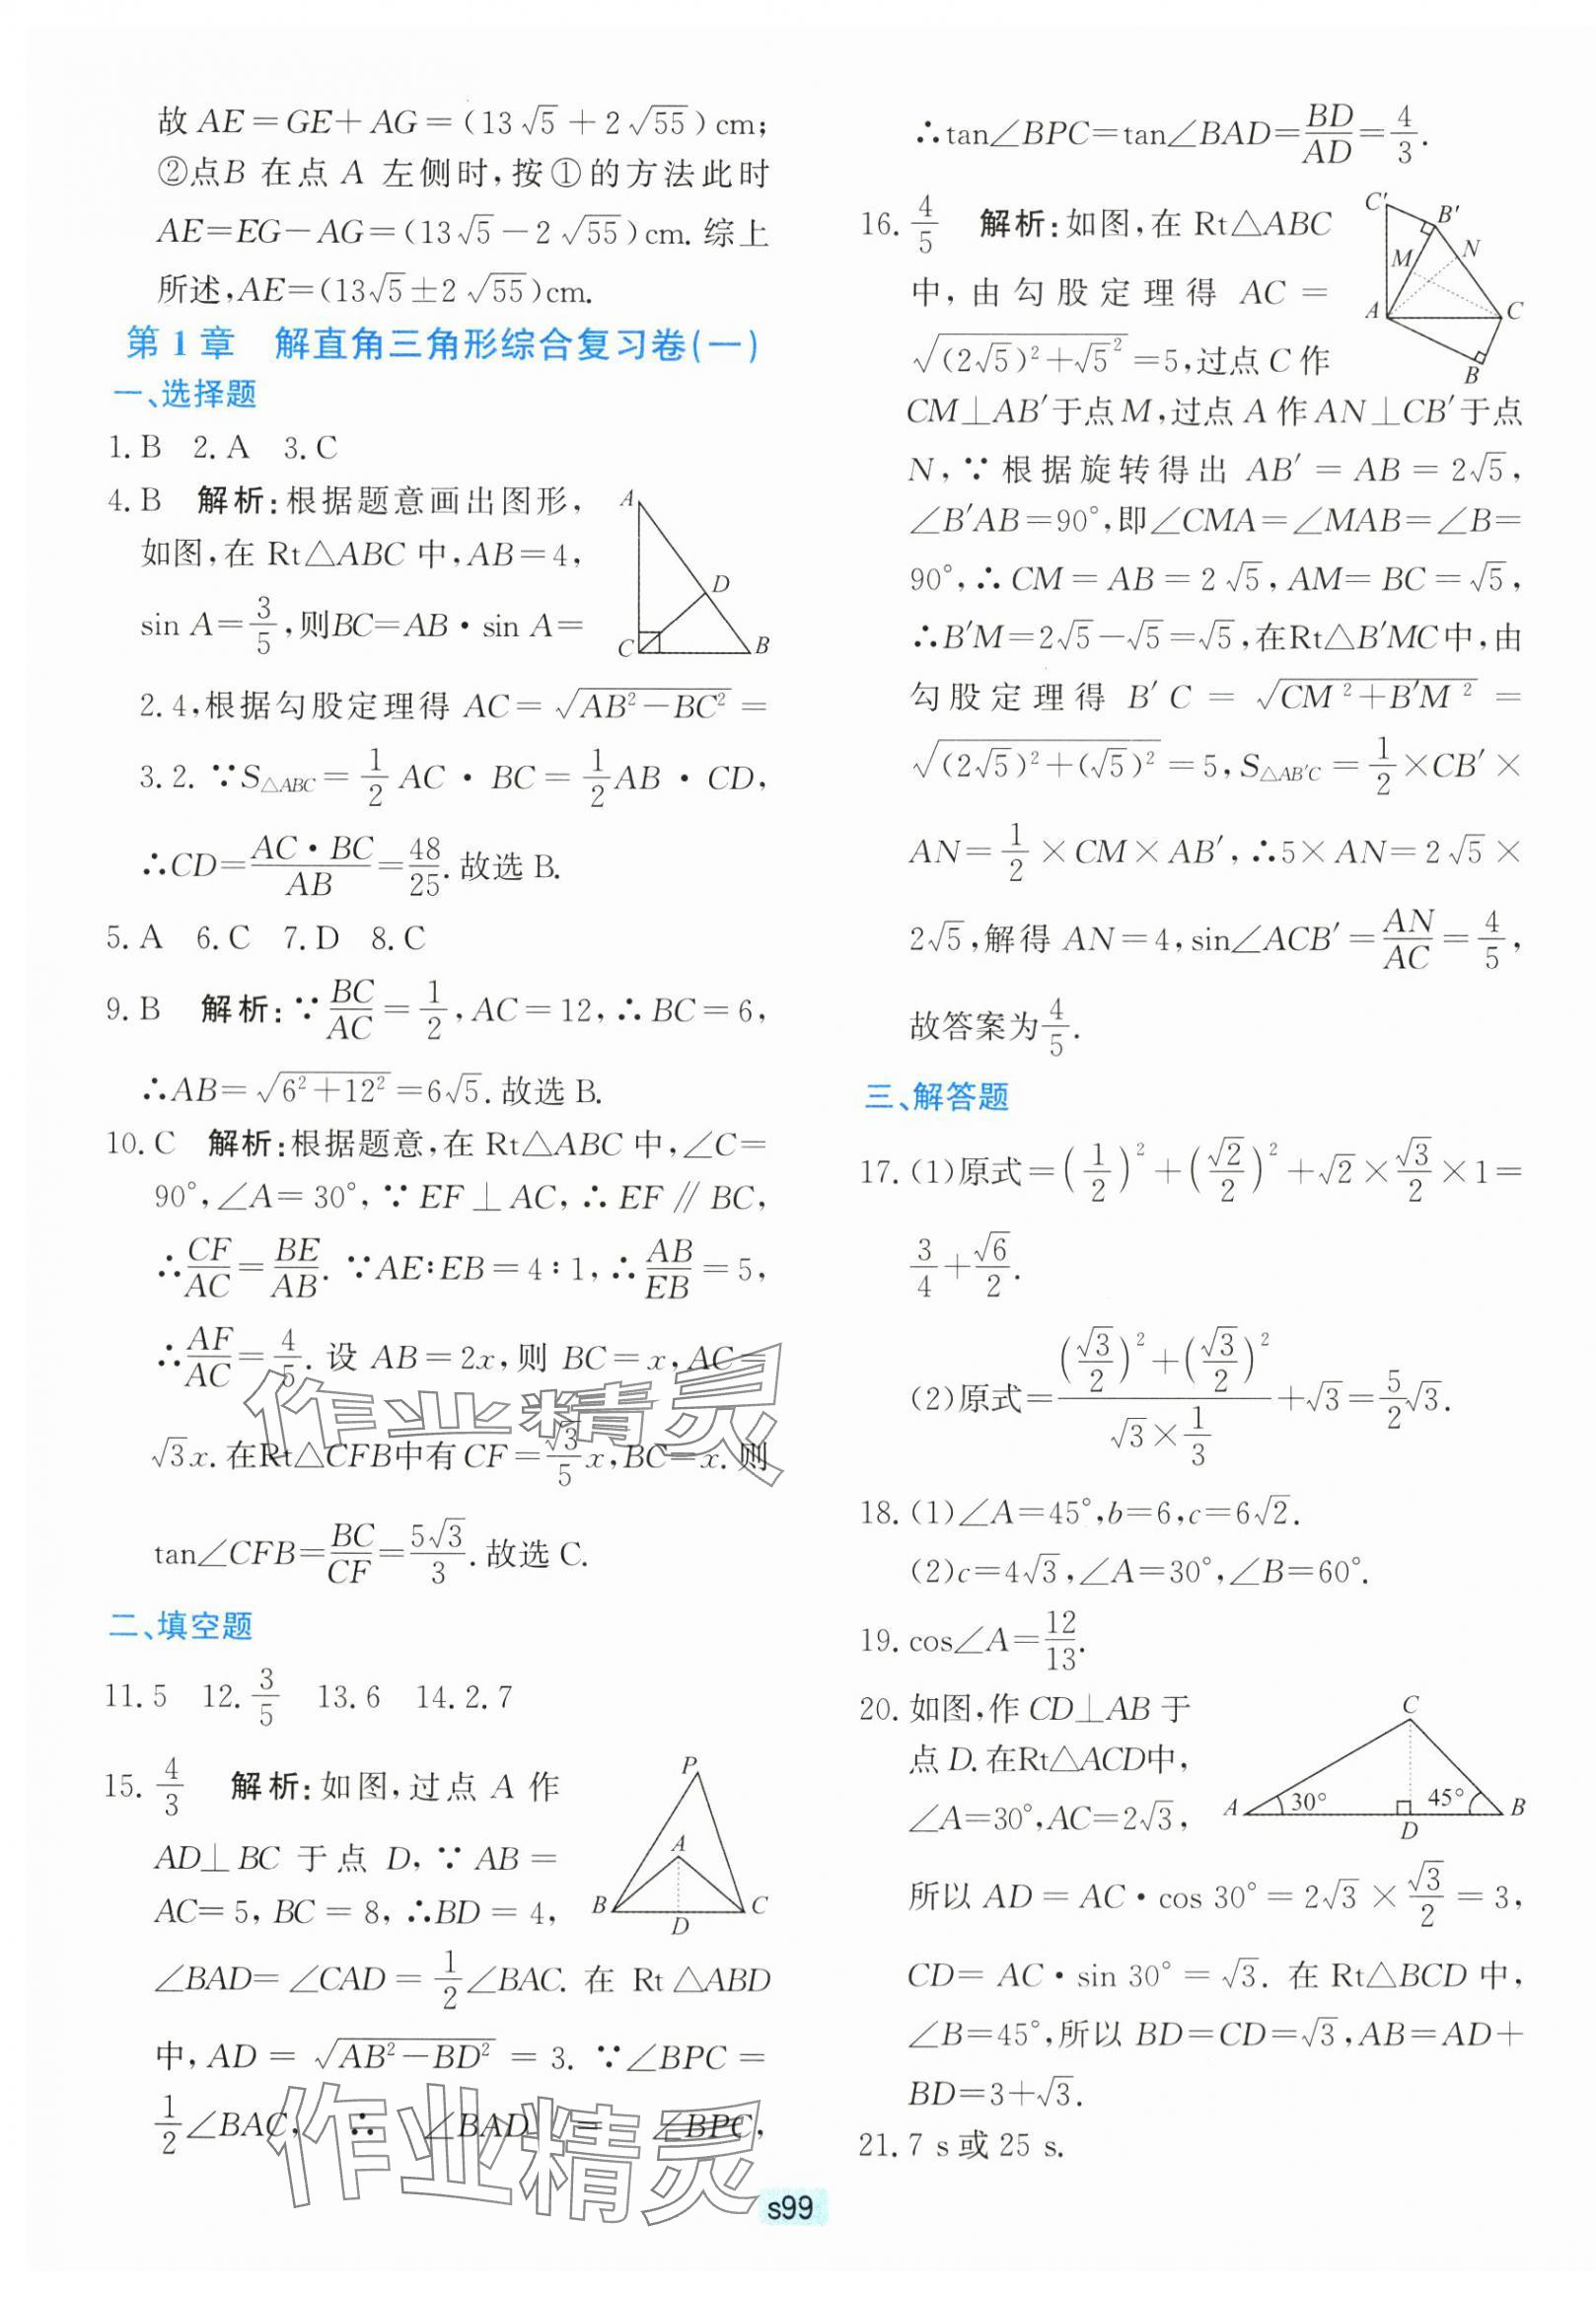 故 AE=GE+AG=(13√5+2√55)cm;
②点B 在点 A 左侧时,按①的方法此时
AE=EG-AG=(13√5-2√55)cm.综上
所述,AE=(13√5±2√55)cm.
第1章 解直角三角形综合复习卷(一)
一、选择题
1.B 2.A 3.C
4.B 解析:根据题意画出图形,
如图,在 Rt△ABC 中,AB=4,
sin A=3/5,则BC=AB·sin A=
2.4,根据勾股定理得 AC=√(AB²-BC²)=
3.2.∵S△ABC=1/2 AC·BC=1/2 AB·CD,
∴CD=AC·BC/AB=48/25.故选 B.
A
D
C
B
5.A 6.C 7.D 8.C
9.B 解析:∵BC/AC=1/2,AC=12,∴BC=6,
∴AB=√(6²+12²)=6√5.故选 B.
10.C 解析:根据题意,在 Rt△ABC 中,∠C=
90°,∠A=30°,∵EF⊥AC,∴EF∥BC,
∴CF/AC=BE/AB.∵AE:EB=4:1,∴AB/EB=5,
∴AF/AC=4/5.设 AB=2x,则 BC=x,AC=
√3x.在Rt△CFB中有CF=√3/5 x,BC=x.则
tan∠CFB=BC/CF=5√3/3.故选 C.
作业精灵
二、填空题
11.5 12.3/5 13.6 14.2.7
15.4/3 解析:如图,过点 A 作
AD⊥BC 于点 D,∵AB=
AC=5,BC=8,∴BD=4,
∠BAD=∠CAD=1/2∠BAC.在 Rt△ABD
中,AD=√(AB²-BD²)=3.∵∠BPC=
1/2∠BAC,∴∠BAD=∠BPC,
P
A
B
D
C
作业精灵
∴tan∠BPC=tan∠BAD=BD/AD=4/3.
16.4/5 解析:如图,在 Rt△ABC
中,由勾股定理得 AC=
√((2√5)²+√5²)=5,过点 C 作
CM⊥AB′于点M,过点 A 作 AN⊥CB′于点
N,∵根据旋转得出 AB′=AB=2√5,
∠B′AB=90°,即∠CMA=∠MAB=∠B=
90°,∴CM=AB=2√5,AM=BC=√5,
∴B′M=2√5-√5=√5,在Rt△B′MC中,由
勾股定理得 B′C=√(CM²+B′M²)=
√((2√5)²+(√5)²)=5,S△AB′C=1/2×CB′×
AN=1/2×CM×AB′,∴5×AN=2√5×
2√5,解得 AN=4,sin∠ACB′=AN/AC=4/5,
故答案为4/5.
C′
B′
M
N
A
C
B
三、解答题
17.(1)原式=(1/2)²+(√2/2)²+√2×√3/2×1=
3/4+√6/2.
(2)原式=((√3/2)²+(√3/2)²)/(√3×1/3)+√3=5/2√3.
18.(1)∠A=45°,b=6,c=6√2.
(2)c=4√3,∠A=30°,∠B=60°.
19.cos∠A=12/13.
20.如图,作 CD⊥AB 于
点 D.在Rt△ACD中,
∠A=30°,AC=2√3,
所以 AD=AC·cos 30°=2√3×√3/2=3,
CD=AC·sin 30°=√3.在 Rt△BCD 中,
∠B=45°,所以 BD=CD=√3,AB=AD+
BD=3+√3.
C
A
30°
45°
B
D
21.7 s或 25 s.
s99